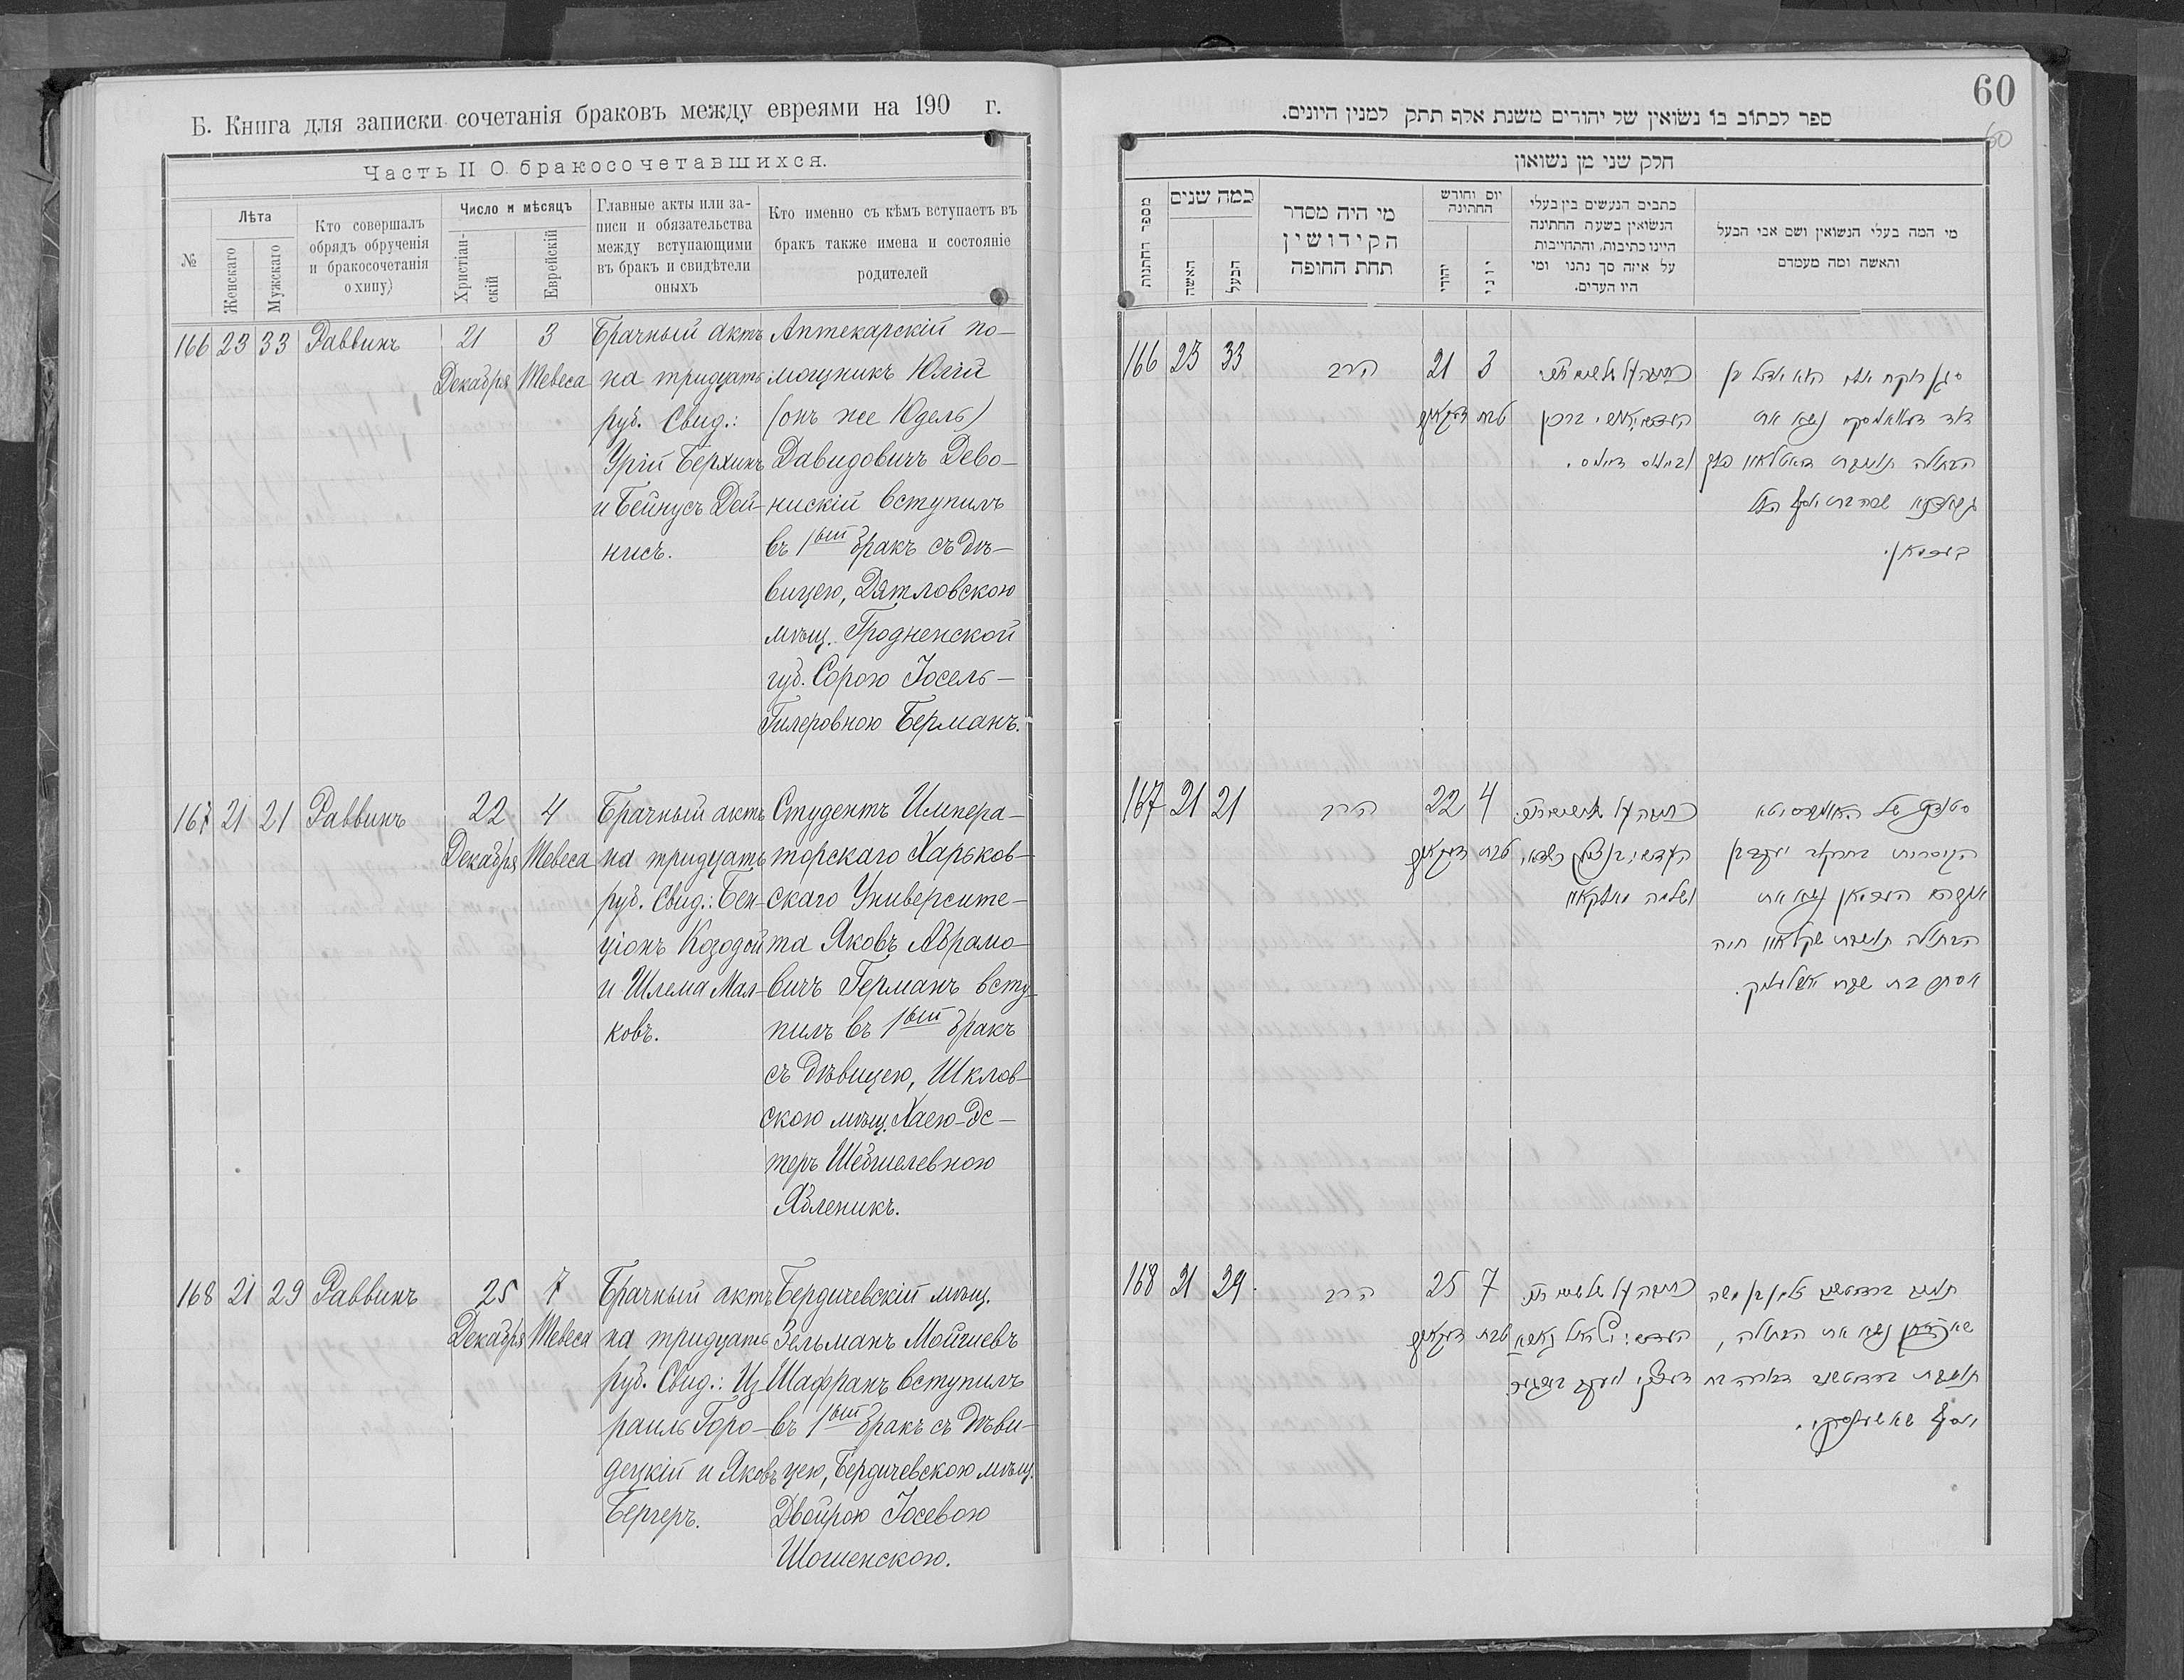 Б. Книга для записки сочетанія браковъ между евреями на 190 г.
Часть II О бракосочетавшихся.
№
Лѣта
Женскаго
Мужскаго
Кто совершалъ
обрядъ обрученія
и бракосочетанія
о хипу)
Число и мѣсяцъ
Христіан-
скій
Еврейскій
Главные акты или за-
писи и обязательства
между вступающими
въ бракъ и свидѣтели
оныхъ
Кто именно съ кѣмъ вступаетъ въ
бракъ также имена и состояніе
родителей
166 23 33 Раввинъ 21 3
Декабря Тевеса
Брачный актъ
на тридцать
руб. Свид.:
Урій Берхинъ
и Бейнусъ Дей-
нисъ.
Аптекарскій по-
мощникъ Юлій
(онъ же Юдель)
Давидовичъ Дево-
нискій вступилъ
въ 1ый бракъ съ дѣ-
вицею, Дятловскою
мѣщ. Гродненской
губ. Сорою Іосель-
Гилеровною Берманъ.
167 21 21 Раввинъ 22 4
Декабря Тевеса
Брачный актъ
на тридцать
руб. Свид.: Бен-
ціонъ Козодой
и Шлема Мал-
ковъ.
Студентъ Импера-
торскаго Харьков-
скаго Университе-
та Яковъ Абрамо-
вичъ Германъ всту-
пилъ въ 1ый бракъ
съ дѣвицею, Шклов-
скою мѣщ. Хаею-Эс-
теръ Шебшелевною
Ябленикъ.
168 21 29 Раввинъ 25 7
Декабря Тевеса
Брачный актъ
на тридцать
руб. Свид.: Из-
раиль Горо-
децкій и Яковъ
Бергеръ.
Бердичевскій мѣщ.
Зельманъ Мойшевъ
Шафранъ вступилъ
въ 1ый бракъ съ дѣви-
цею, Бердичевскою мѣщ.
Двойрою Іосевою
Шошенскою.
60
60
ספר לכתוב בו נשואין של יהודים משנת אלף תתק למנין היונים.
חלק שני מן נשואון
מספר החתנות
כמה שנים
האישה
הבעל
מי היה מסדר
הקידושין
תחת החופה
יום וחורש
החתונה
יהודי
יוני
כתבים הנעשים בין בעלי
הנשואין בשעת החתונה
היינו כתיבות, והתחייבות
על איזה סך נתנו ומי
היו העדים.
מי המה בעלי הנשואין ושם אבי הבעל
והאשה ומה מעמדם
166 23 33 הרב 21 3
דעקאבר טבת
דוד
נשא את
הבתולה
שרה בת יוסף הלל
בערמאן.
167 21 21 הרב 22 4
דעקאבר טבת
ושלמה מאלקאוו
סטודענט של האוניווערסיטא
אברהם הערמאן נשא את
הבתולה תושבת שקלאוו חיה
168 21 29. הרב 25 7
דעקאבר טבת
תושב ברדיטשוב זלמן בן משה
נשא את הבתולה,
תושבת ברדיטשוב דבורה בת
יוסף שאשענסקי.